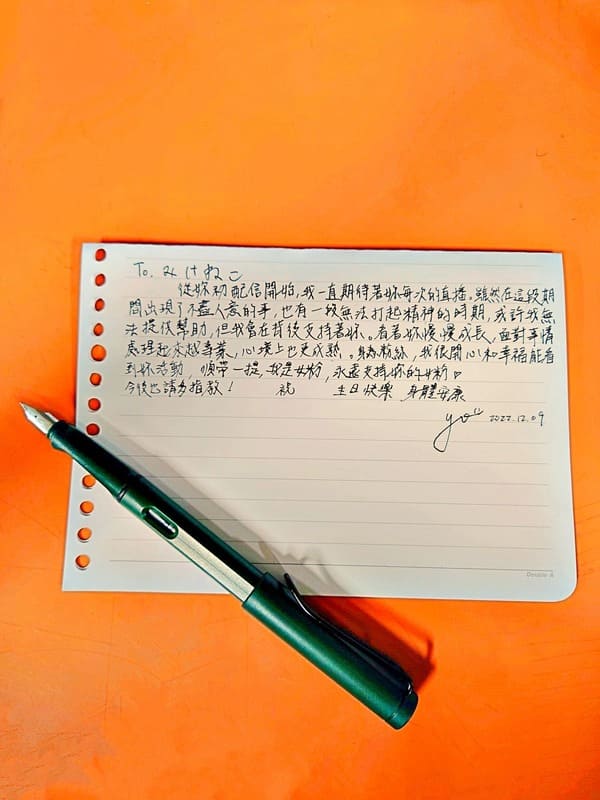 To. みけねこ
從妳初配信開始,我一直期待著妳每次的直播。雖然在這段期
間出現了不盡人意的事,也有一段無法打起精神的時期,或許我無
法提供幫助,但我會在背後支持著妳。看著妳慢慢成長,面對事情
處理起來越專業,心境上也更成熟。身為粉絲,我很開心和幸福能看
到妳活動,順帶一提,我是女粉,永遠支持妳的女粉♡
今後也請多指教! 祝 生日快樂 身體安康
yo 2022.12.09
Double A